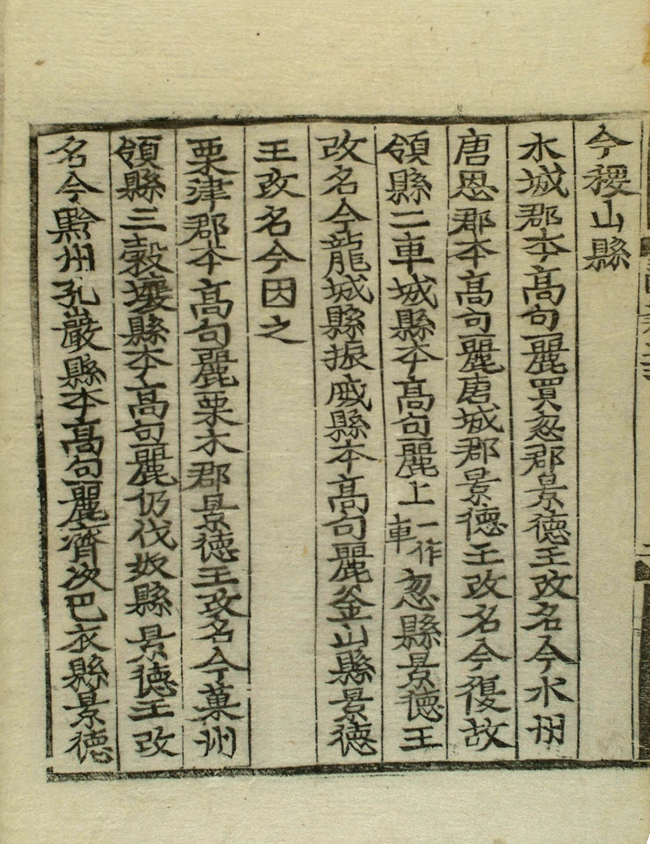 今稷山縣
水城郡本高句麗買忽郡景德王改名今水州
唐恩郡本高句麗唐城郡景德王改名今復故
領縣二車城縣本高句麗上一作車忽縣景德王
改名今龍城縣振威縣本高句麗釜山縣景德
王改名今因之
栗津郡本高句麗栗木郡景徳王改名今菓州
領縣三穀壤縣本高句麗仍伐奴縣景德王改
名今黔州孔巖縣本高句麗濟次巴衣縣景德